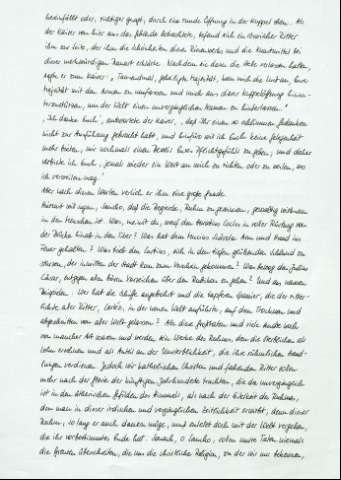 beeinflußt oder, richtiger gesagt, durch eine runde Öffnung in der Kuppel oben. Als
der Kaiser von hier aus das Gebäude betrachtete, befand sich ein römischer Ritter
ihm zur Seite, der ihm die Schönheiten dieses Riesenwerks und die Kunstmittel bei
diesem merkwürdigen Bauwerk erklärte. Nachdem sie dann die Stelle verlassen hatten,
sagte er zum Kaiser: ‚Tausendmal, geheiligte Majestät, kam mich die Lust an, Eure
Majestät mit den Armen zu umfassen und mich aus dieser Kuppelöffnung hinun-
terzustürzen, um der Welt einen unvergänglichen Namen zu hinterlassen.‘
‚Ich danke Euch‘, antwortete der Kaiser, ‚daß Ihr einen so schlimmen Gedanken
nicht zur Ausführung gebracht habt, und hinfüro will ich Euch keine Gelegenheit
mehr bieten, mir nochmals einen Beweis Eures Pflichtgefühls zu geben; und daher
verbiete ich Euch, jemals wieder ein Wort an mich zu richten oder zu weilen, wo
ich verweilen mag.‘
Aber nach diesen Worten verlieh er ihm eine große Gnade.
Hiermit will ich sagen, Sancho, daß die Begierde, Ruhm zu gewinnen, gewaltig wirksam
in den Menschen ist. Was, meinst du, warf den Horatius Cocles in voller Rüstung von
der Brücke hinab in den Tiber? Was hat dem Mucius Scävola Arm und Hand im
Feuer gehalten? Was trieb den Curtius, sich in den tiefen glühenden Schlund zu
stürzen, der inmitten der Stadt Rom zum Vorschein gekommen? Was bewog den Julius
Cäsar, entgegen allen bösen Vorzeichen über den Rubikon zu gehen? Und an neueren
Beispielen: Wer hat die Schiffe angebohrt und die tapferen Spanier, die der ritter-
lichste aller Ritter, Cortés, in der neuen Welt anführte, auf dem Trocknen und
abgeschnitten von aller Welt gelassen? All diese Großtaten und viele andre noch
von mancher Art waren und werden ein Werke des Ruhmes, den die Sterblichen als
Lohn ersehnen und als Anteil an der Unsterblichkeit, die ihre rühmlichen Hand-
lungen verdienen. Jedoch wir katholischen Christen und fahrenden Ritter sollen
mehr nach der Glorie der künftigen Jahrhunderte trachten, die da unvergänglich
ist in den ätherischen Gefilden des Himmels, als nach der Eitelkeit des Ruhmes,
den man in dieser irdischen und vergänglichen Zeitlichkeit erwirbt, denn dieser
Ruhm, so lang er auch dauern möge, muß endlich doch mit der Welt vergehen,
die ihr vorbestimmtes Ende hat. Danach, o Sancho, sollen unsre Taten niemals
die Grenzen überschreiten, die uns die christliche Religion, zu der wir uns bekennen,